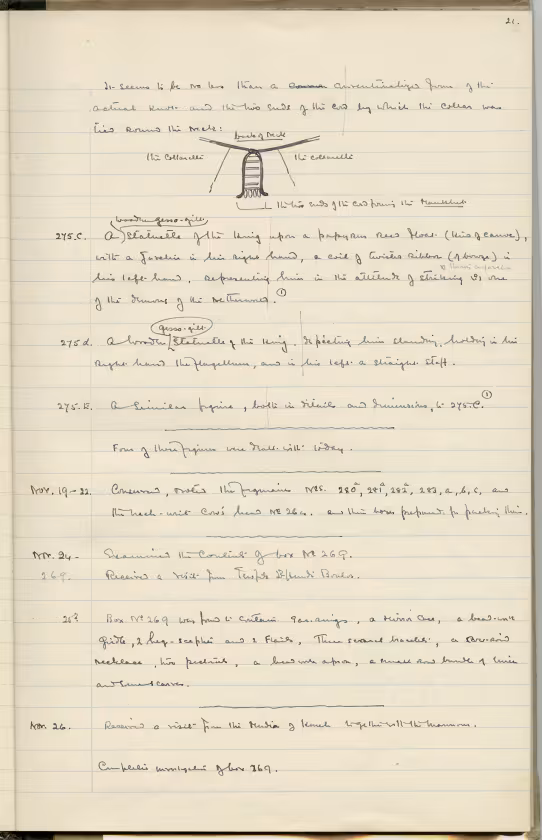 21.
It seems to be no less than a conventionalized form of the
actual knot and the two ends of the cord by which the collar was
tied round the neck:
back of neck
the collarette the collarette
the two ends of the cord forming the
wooden-gesso-gilt
275.C. A Statuette of the King upon a papyrus reed float (this of canoe),
with a javelin in his right hand, a coil of twisted ribbon (of bronze) in
his left hand, representing him in the attitude of striking at one
of the demons of the Netherworld. ①
gesso-gilt
275 d. A wooden Statuette of the King, depicting him standing, holding in his
right hand the flagellum, and in his left a straight staff.
275. E. A similar figure, both in details and dimensions, to 275.C. ①
Four of these figures were dealt with today.
Nov. 19-22. the figures Nos. 280ᵃ, 281ᵃ, 282ᵃ, 283, a, b, c, and
the neck with Cow's head Nº 264. and the boxes prepared for packing them.
Nov. 24 - Examined the Contents of box Nº 269.
269. Received a visit from
25? Box Nº 269 was found to contain ear-rings, a mirror case, a bead-work
girdle, 2 and 2 Flails, Three bracelets, a
necklace, two pectorals, a apron, a small bundle of linen
and
Nov. 26. Received a visit from the of together with the
Completed investigation of box 269.